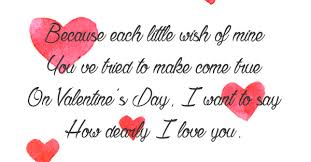 Because each little wish of mine
You've tried to make come true
On Valentine's Day, I want to say
How dearly I love you.